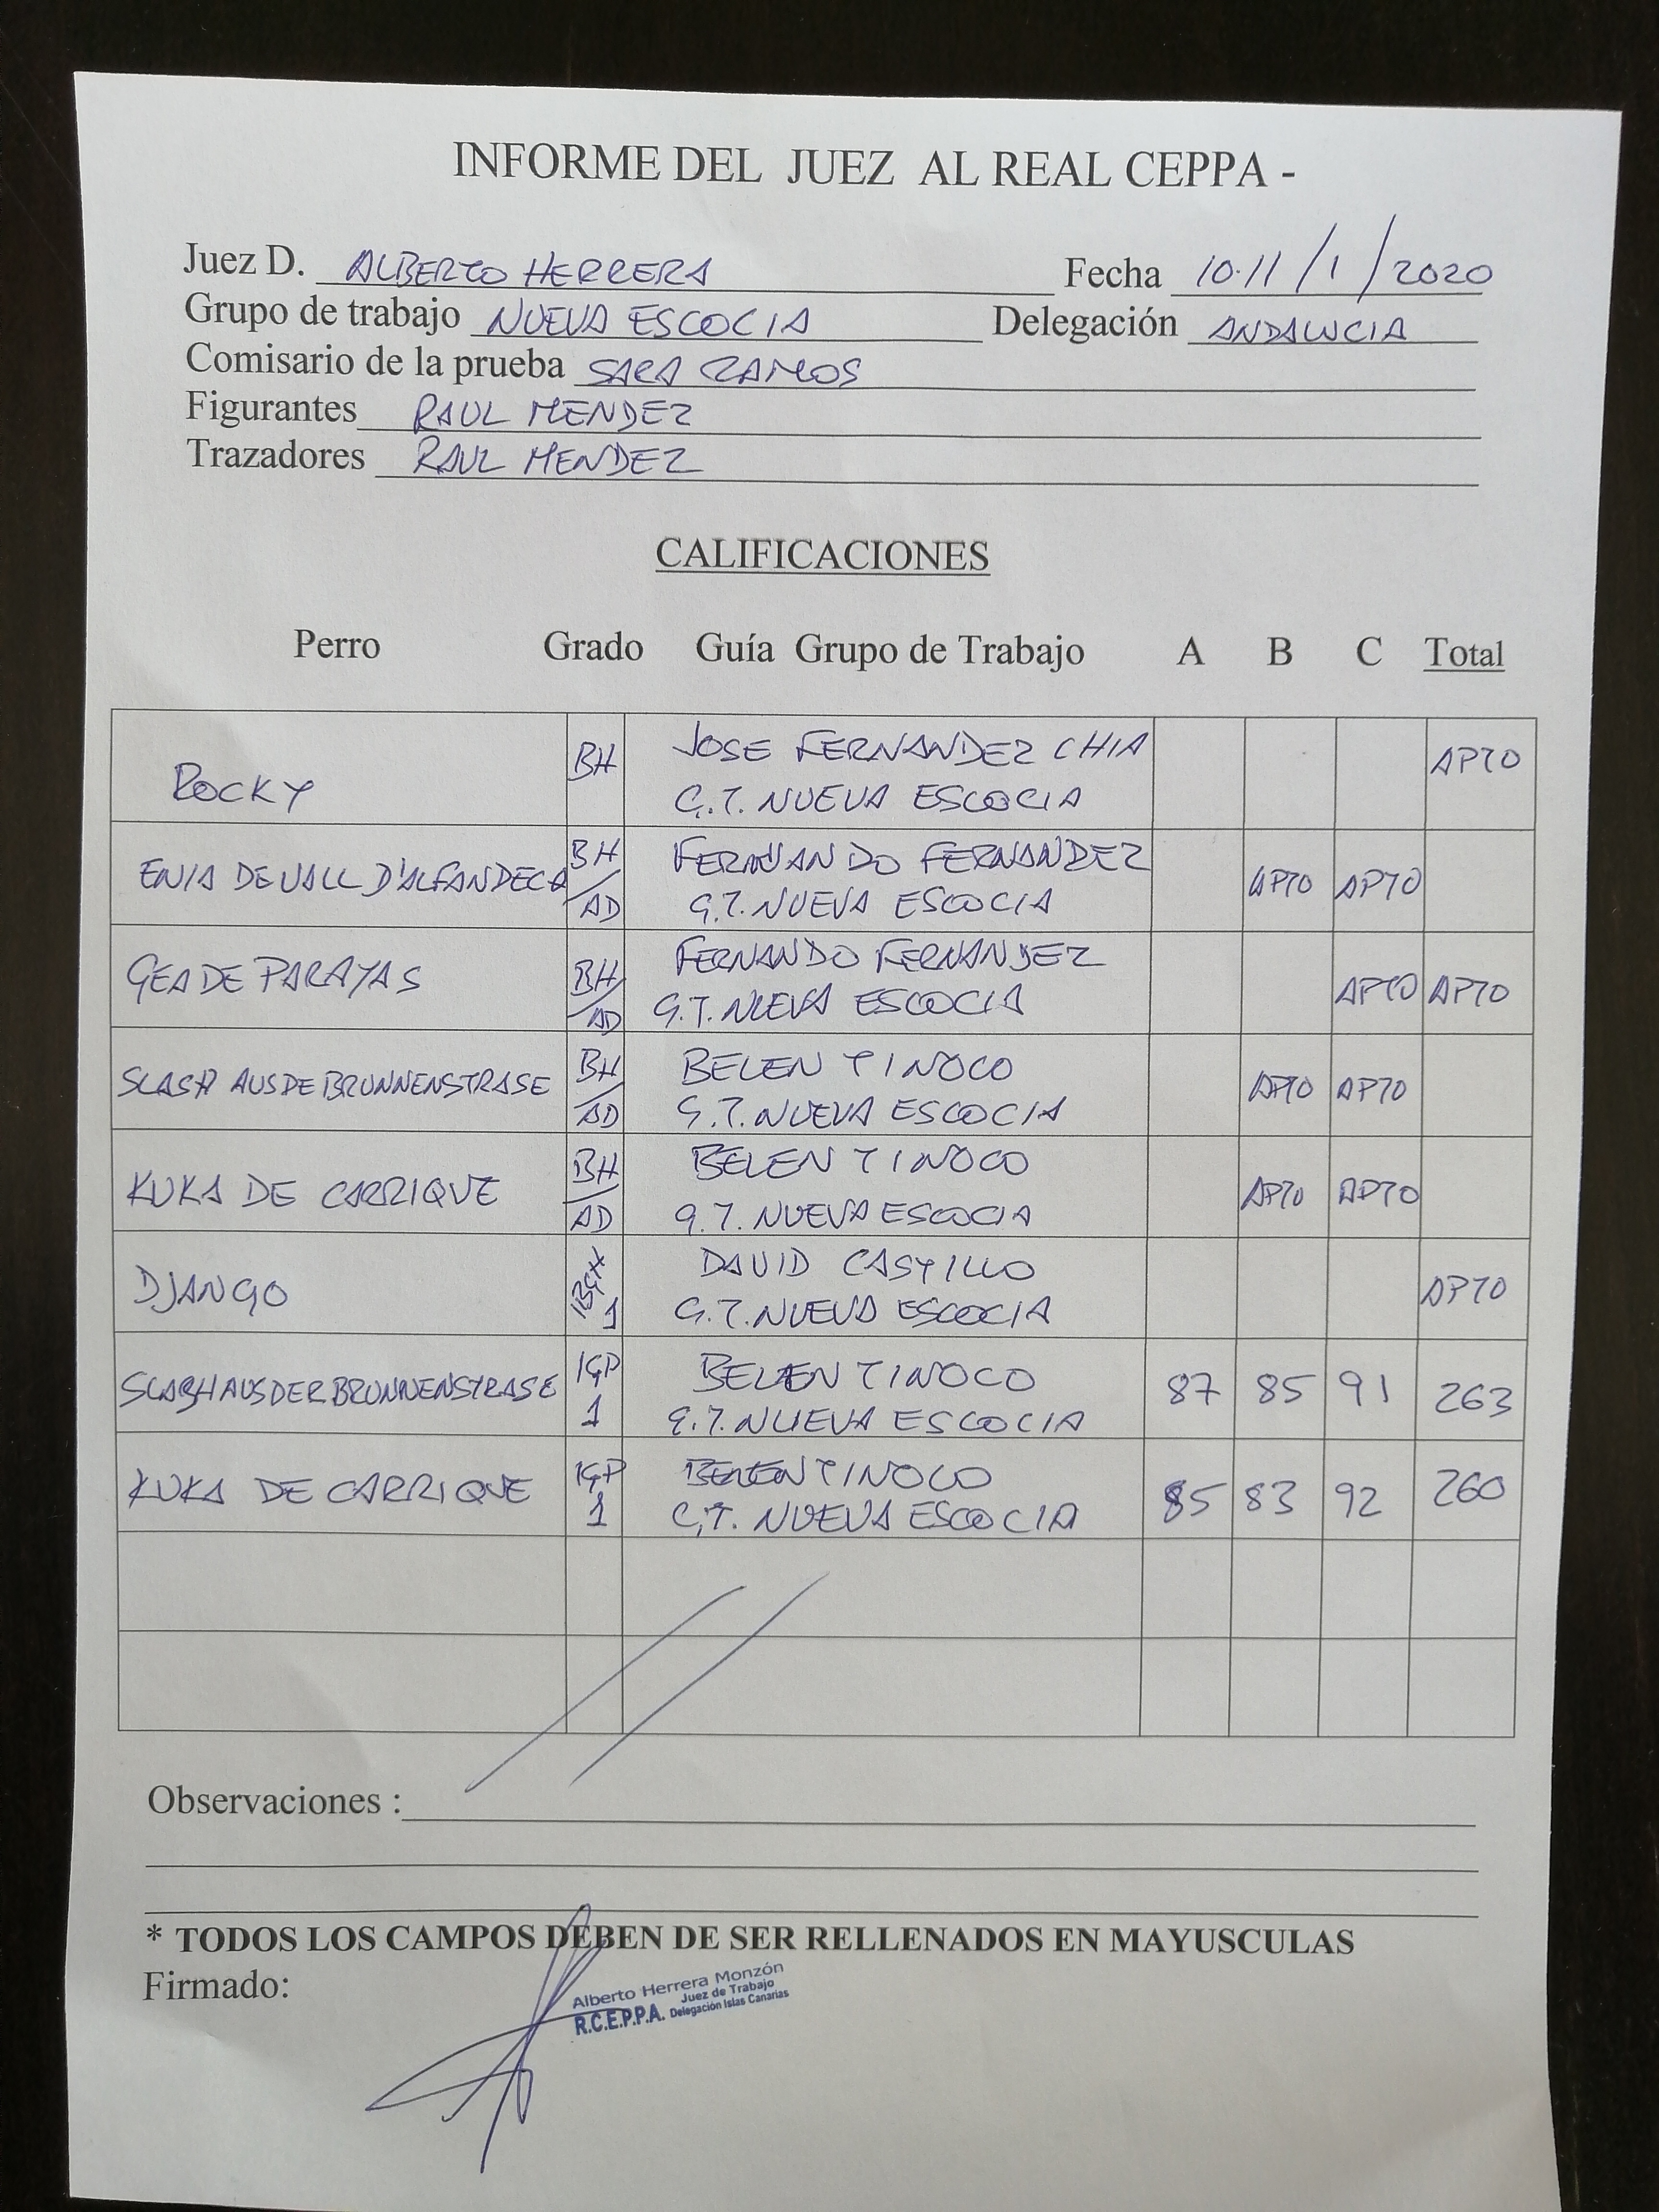 INFORME DEL JUEZ AL REAL CEPPA -
Juez D. ALBERTO HERRERA Fecha 10.11/1/2020
Grupo de trabajo NUEVA ESCOCIA Delegación ANDALUCIA
Comisario de la prueba SARA RAMOS
Figurantes RAUL MENDEZ
Trazadores RAUL MENDEZ
CALIFICACIONES
Perro Grado Guía Grupo de Trabajo A B C Total
ROCKY BH JOSE FERNANDEZ CHIA APTO
G.T. NUEVA ESCOCIA
ENIA DE VALL D'ALFANDECA BH/AD FERNANDO FERNANDEZ APTO APTO
G.T. NUEVA ESCOCIA
GEA DE PARAYAS BH/AD FERNANDO FERNANDEZ APTO APTO
G.T. NUEVA ESCOCIA
SLASH AUS DE BRUNNENSTRASE BH/AD BELEN TINOCO APTO APTO
G.T. NUEVA ESCOCIA
KUKA DE CARRIQUE BH/AD BELEN TINOCO APTO APTO
G.T. NUEVA ESCOCIA
DJANGO IBGH 1 DAVID CASTILLO APTO
G.T. NUEVA ESCOCIA
SLASH AUS DER BRUNNENSTRASE IGP 1 BELEN TINOCO 87 85 91 263
G.T. NUEVA ESCOCIA
KUKA DE CARRIQUE IGP 1 BELEN TINOCO 85 83 92 260
G.T. NUEVA ESCOCIA
Observaciones :
* TODOS LOS CAMPOS DEBEN DE SER RELLENADOS EN MAYUSCULAS
Firmado:
Alberto Herrera Monzón
Juez de Trabajo
R.C.E.P.P.A. Delegación Islas Canarias